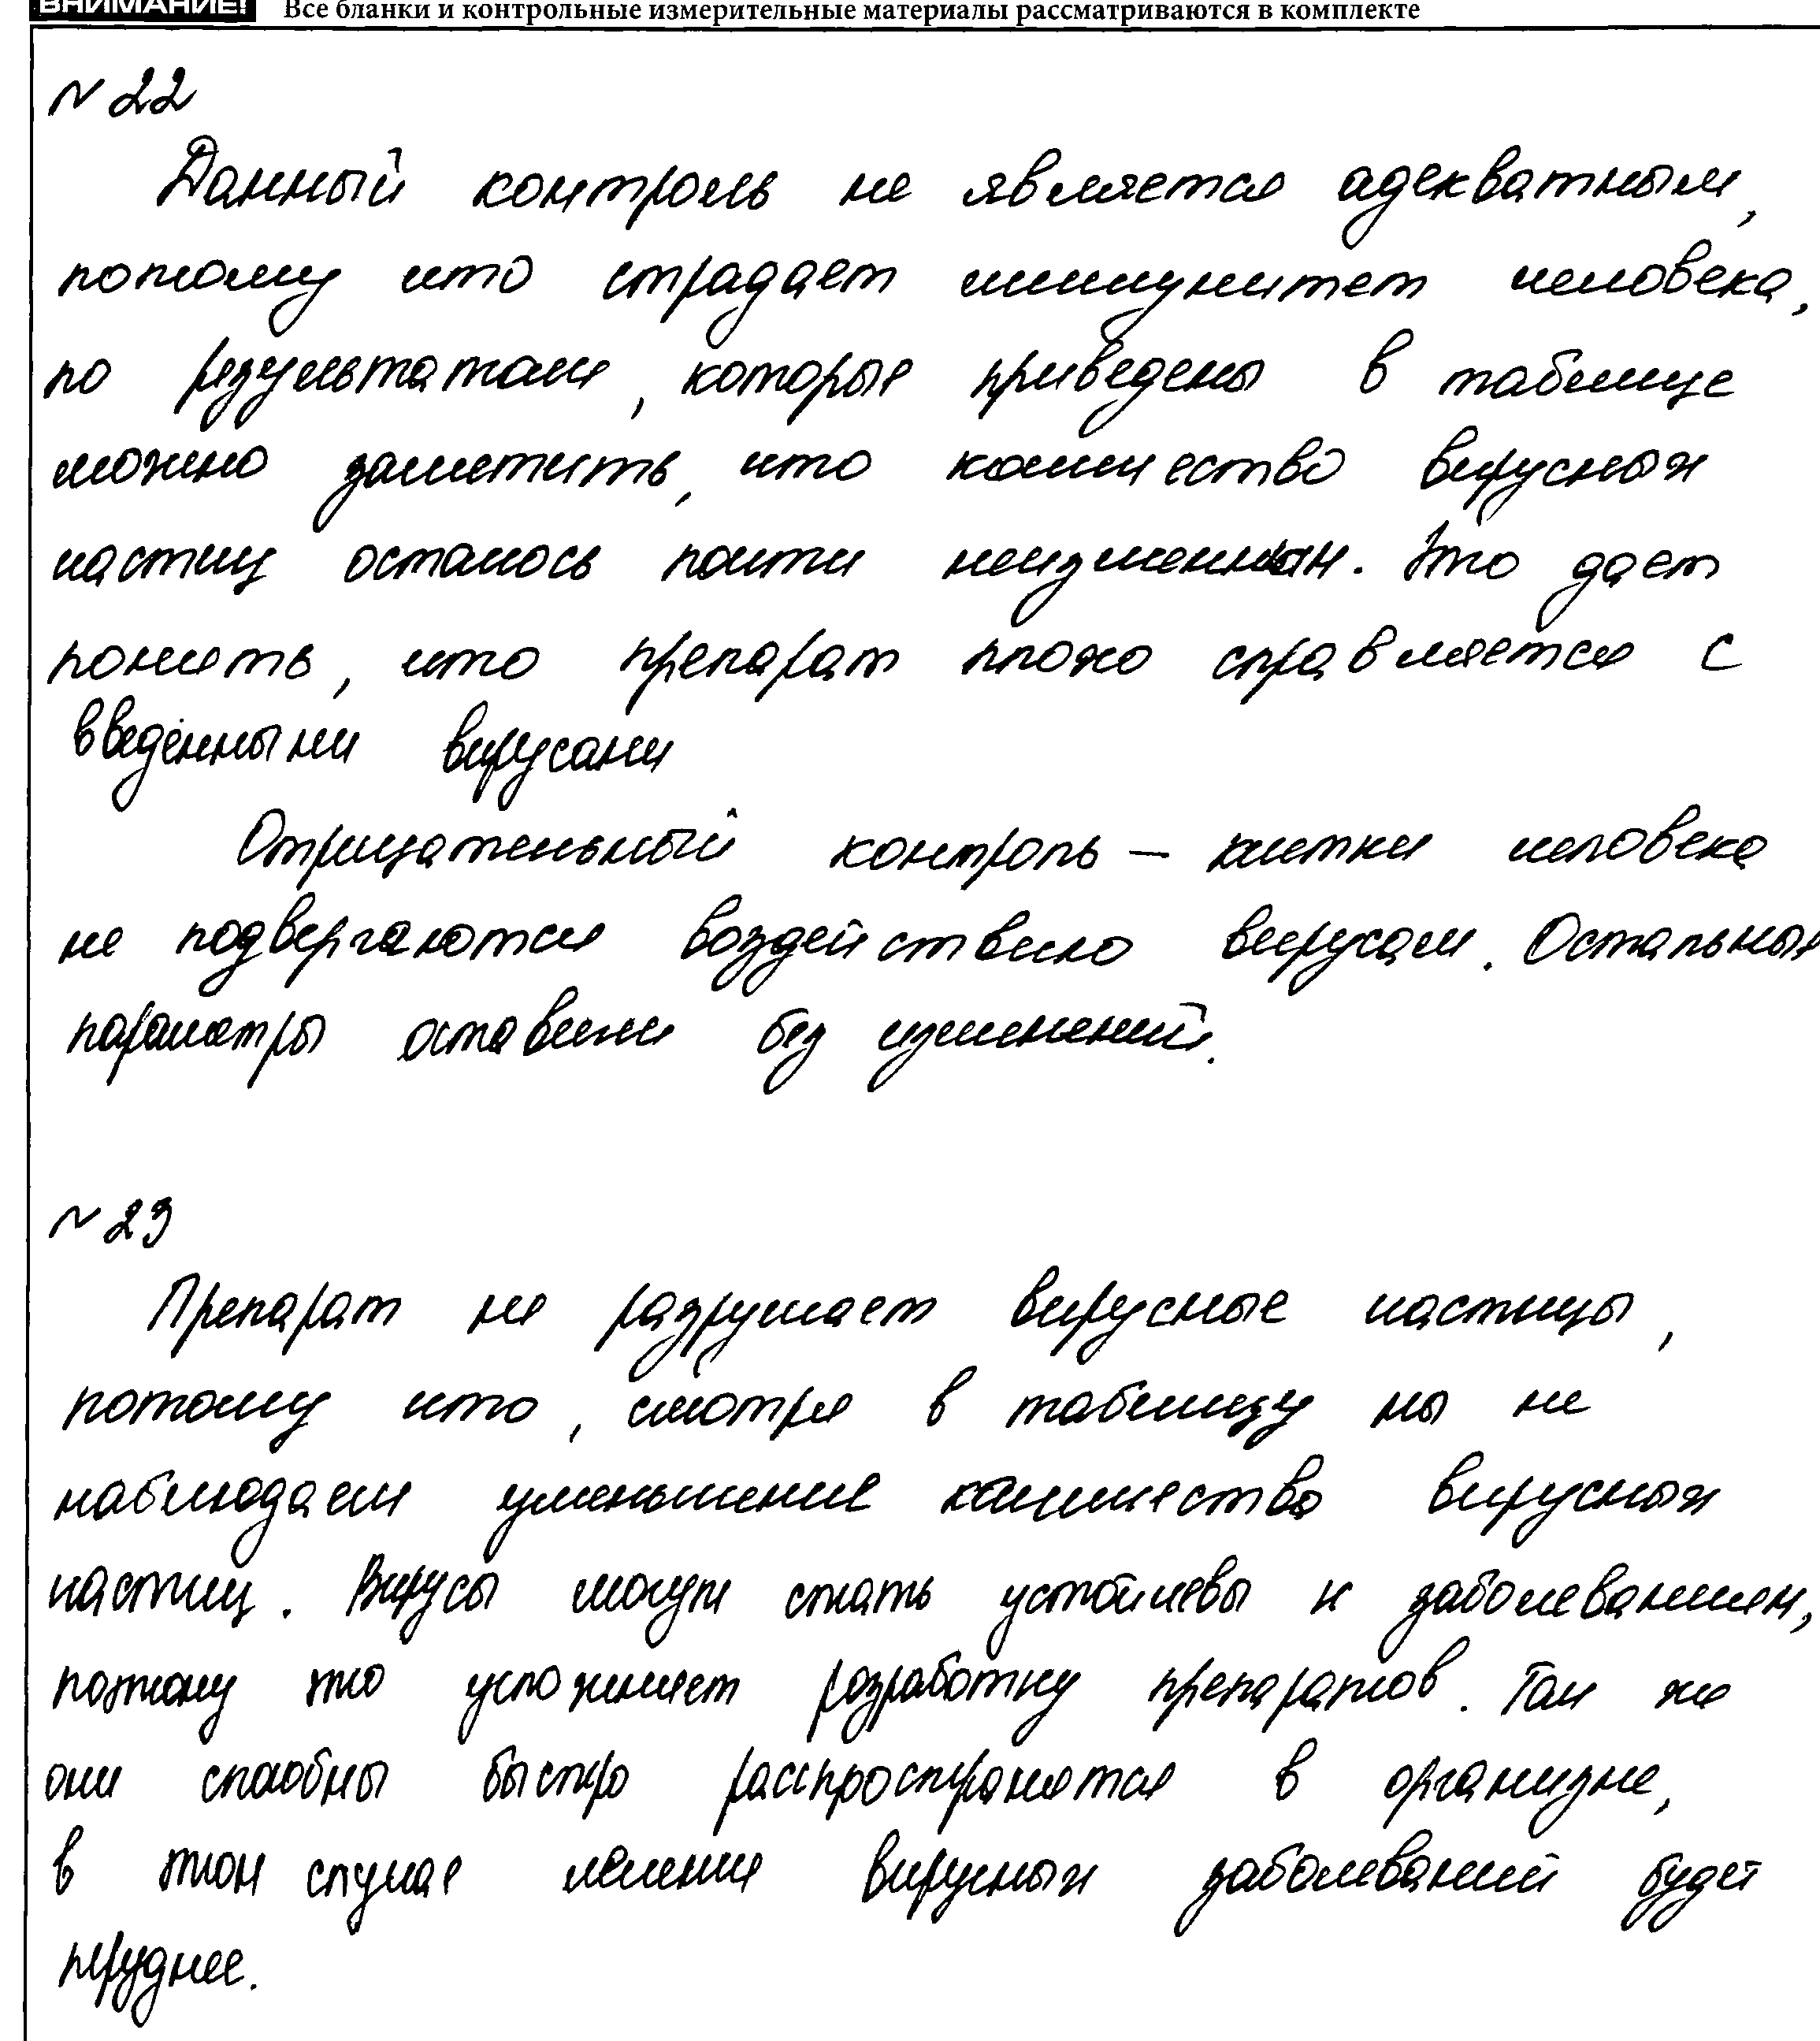 ВНИМАНИЕ! Все бланки и контрольные измерительные материалы рассматриваются в комплекте
№ 22
Данный контроль не является адекватным,
потому что страдает иммунитет человека,
по результатам, которые приведены в таблице
можно заметить, что количество вирусных
частиц осталось почти неизменным. Это дает
понять, что препарат плохо справляется с
введёнными вирусами
Отрицательный контроль – клетки человека
не подвергаются воздействию вирусам. Остальные
параметры оставить без изменений.
№ 23
Препарат не разрушает вирусные частицы,
потому что, смотря в таблицу мы не
наблюдаем уменьшение количества вирусных
частиц. Вирусы могут стать устойчевы к заболеваниям,
потому это усложняет разработку препаратов. Так же
они способны быстро распространятся в организме,
в этом случае лечение вирусных заболеваний будет
труднее.